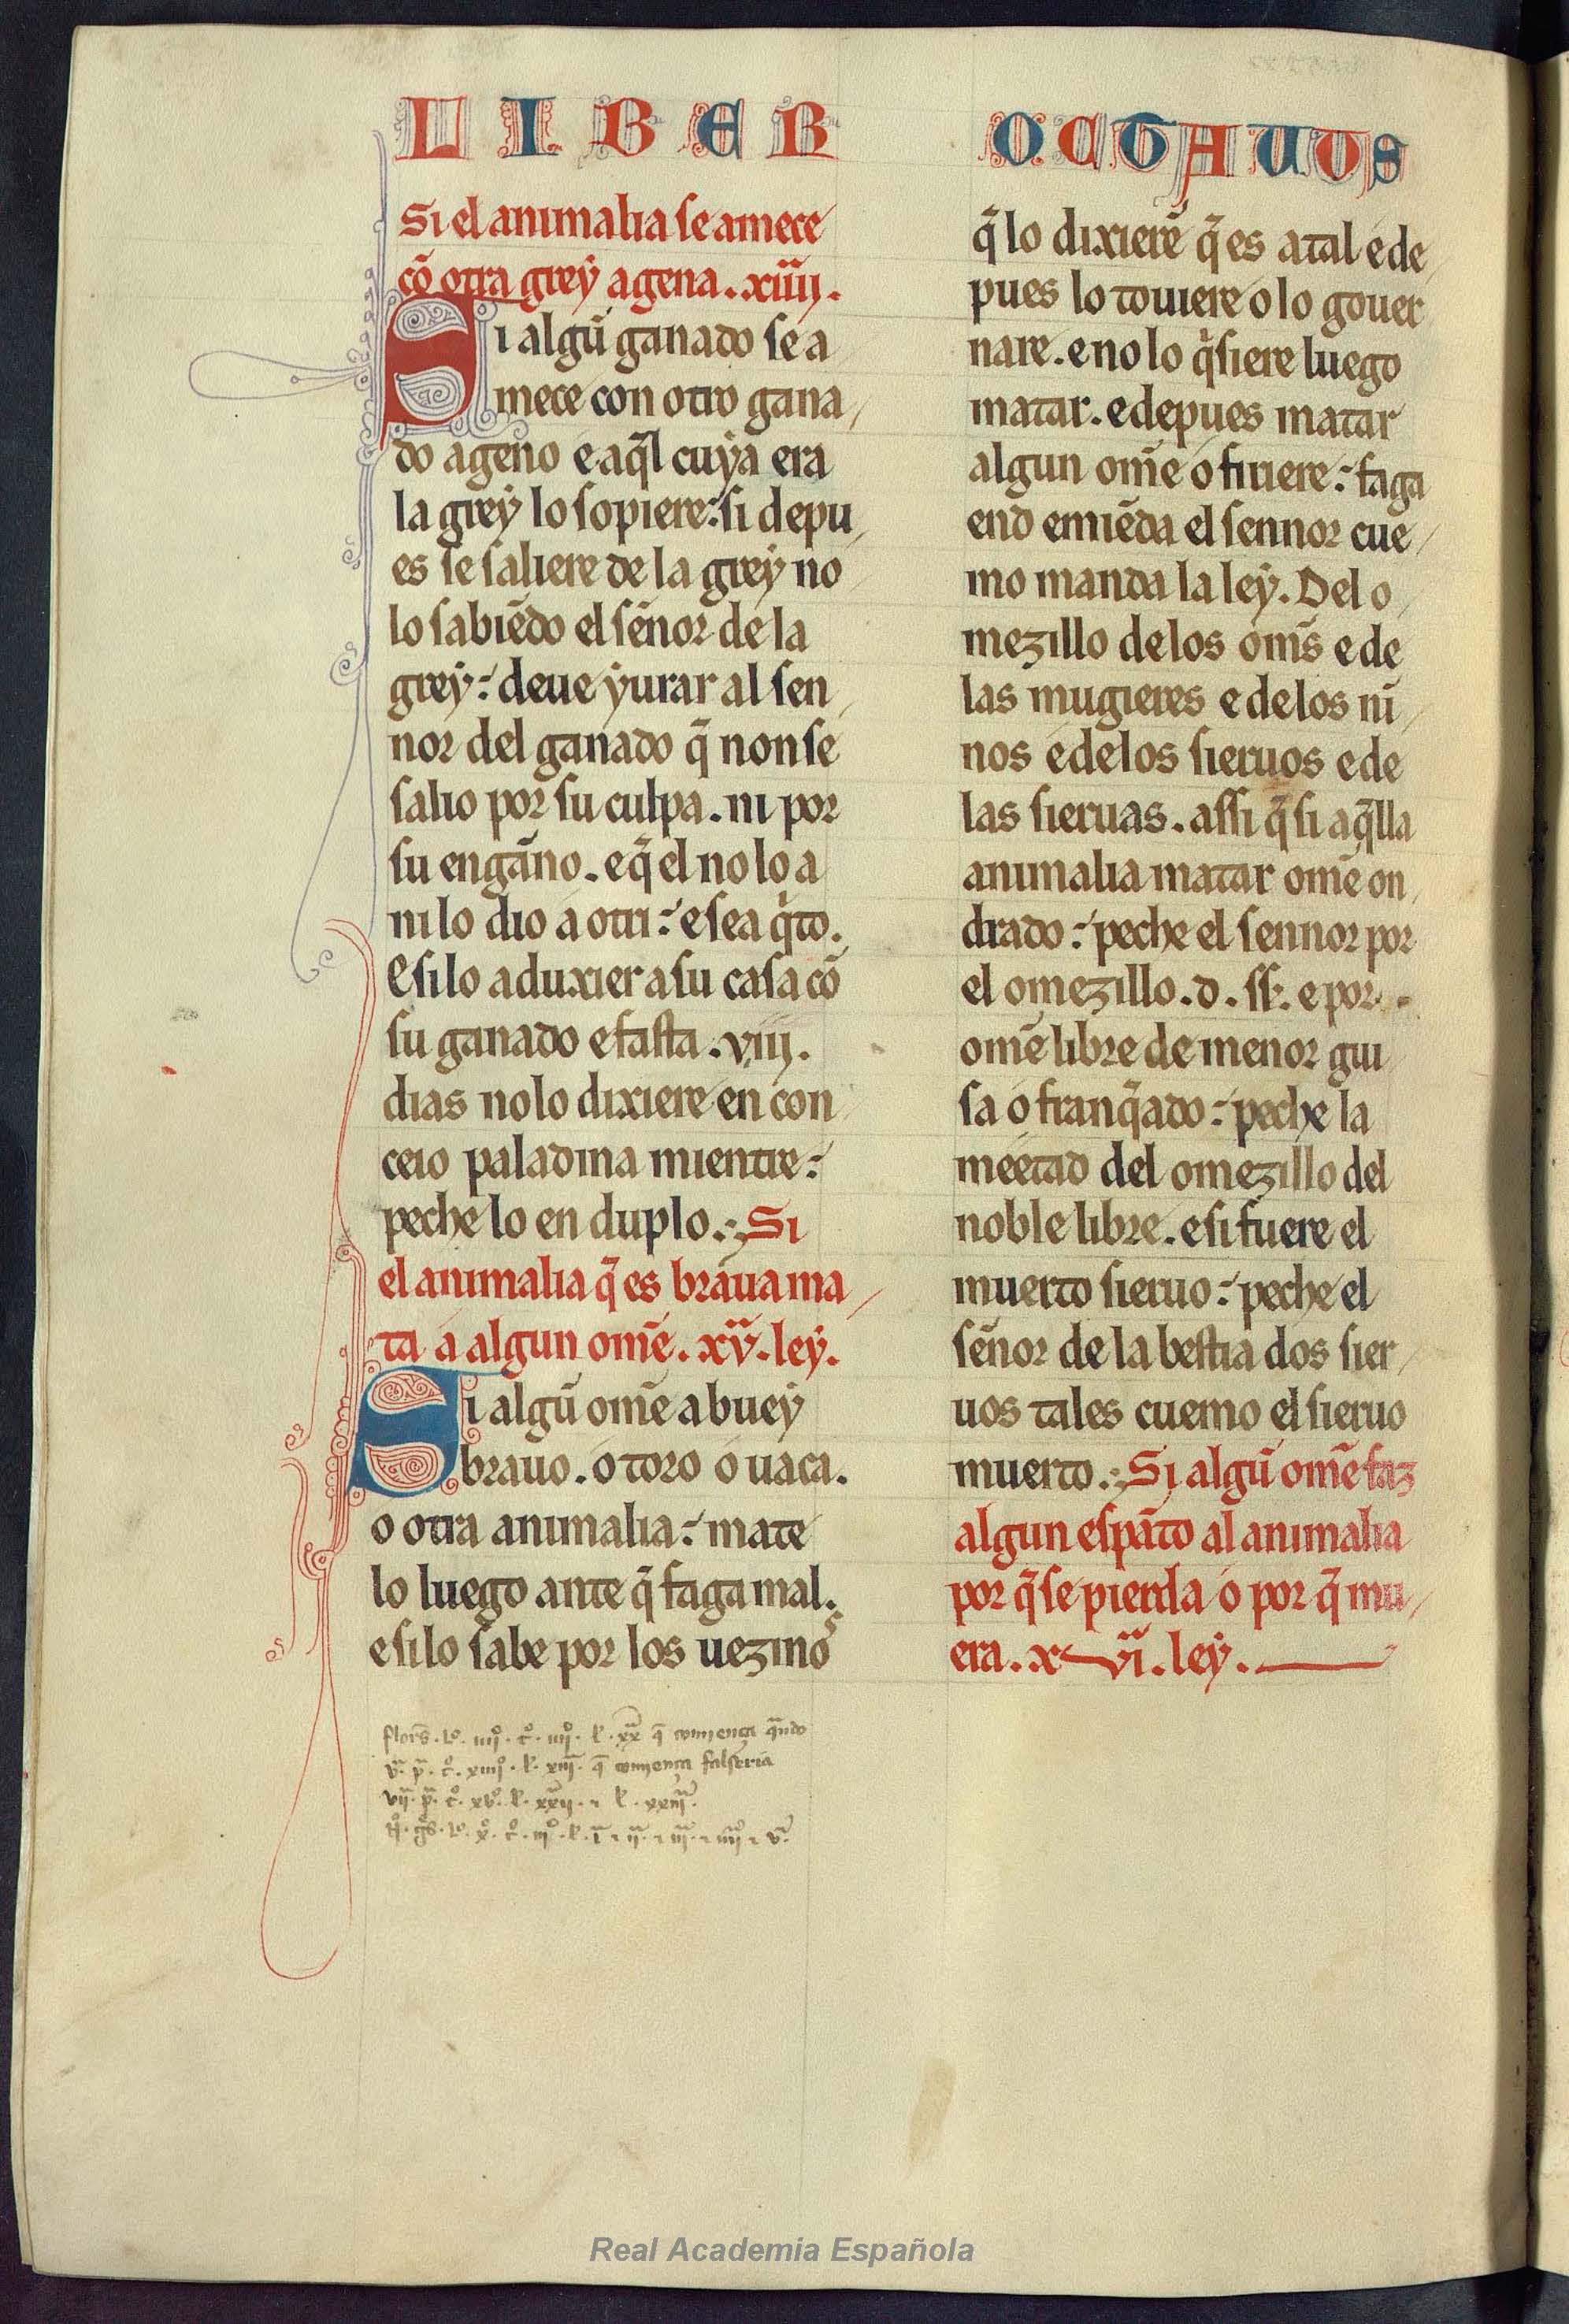 LIBER OCTAUUS
Si el animalia se amece
cõ otra grey agena. xiiii.
Si algũ ganado se a
mece con otro gana
do ageno e aq̃l cuya era
la grey lo sopiere: si depu
es se saliere de la grey no
lo sabiẽdo el sẽnor de la
grey: deue yurar al sen
nor del ganado q̃ non se
salio por su culpa. ni por
su engãno. e q̃ el no lo a
ni lo dio a otri: e sea q̇to.
E si lo aduxier a su casa cõ
su ganado e fasta .viii.
dias no lo dixiere en con
ceio paladina mientre:
peche lo en duplo. Si
el animalia q̃ es braua ma
ta a algun om̃e. xv. ley.
Si algũ om̃e a buey
brauo. o toro o uaca.
o otra animalia: mate
lo luego ante q̃ faga mal.
e si lo sabe por los uezinos
q̃ lo dixierẽ q̃ es atal e de
pues lo touiere o lo gouer
nare. e no lo q̇siere luego
matar. e depues matar
algun om̃e o firiere: faga
end emiẽda el sennor cue
mo manda la ley. Del o
mezillo de los om̃s e de
las mugieres e de los nĩ
nos e de los sieruos e de
las sieruas. assi q̃ si aq̃lla
animalia matar om̃e on
drado: peche el sennor por
el omezillo. d. ss. e por
om̃e libre de menor gui
sa o franq̃ado: peche la
meetad del omezillo del
noble libre. e si fuere el
muerto sieruo: peche el
sẽnor de la bestia dos sier
uos tales cuemo el sieruo
muerto. Si algũ om̃e faz
algun espãto al animalia
por q̃ se pierda o por q̃ mu
era. xvi. ley.
Real Academia Española